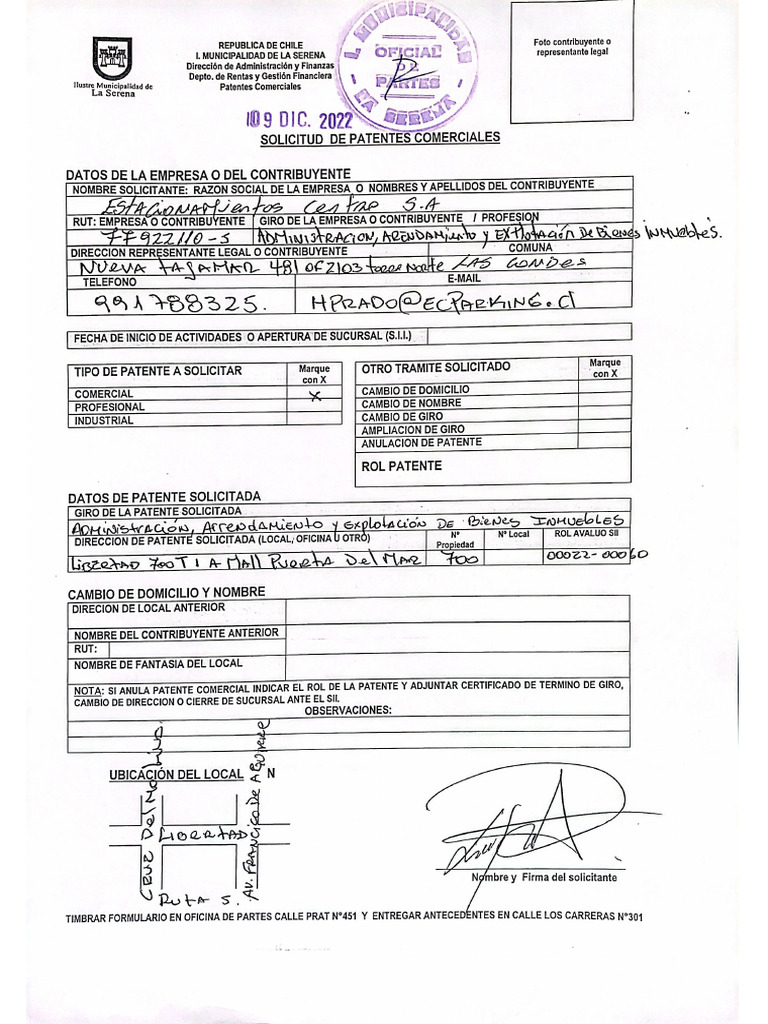 Ilustre Municipalidad de
La Serena
REPUBLICA DE CHILE
I. MUNICIPALIDAD DE LA SERENA
Dirección de Administración y Finanzas
Depto. de Rentas y Gestión Financiera
Patentes Comerciales
I. MUNICIPALIDAD
OFICIAL
DE
PARTES
LA SERENA
Foto contribuyente o
representante legal
09 DIC. 2022
SOLICITUD DE PATENTES COMERCIALES
DATOS DE LA EMPRESA O DEL CONTRIBUYENTE
NOMBRE SOLICITANTE: RAZON SOCIAL DE LA EMPRESA O NOMBRES Y APELLIDOS DEL CONTRIBUYENTE
Estacionamientos Centro S.A
RUT: EMPRESA O CONTRIBUYENTE GIRO DE LA EMPRESA O CONTRIBUYENTE / PROFESION
77922110-5 Administracion, Arendamiento y Explotación De Bienes inmuebles.
DIRECCION REPRESENTANTE LEGAL O CONTRIBUYENTE COMUNA
Nueva tajamar 481 of 2103 torre norte Las Condes
TELEFONO E-MAIL
991788325. HPRADO@ECPARKING.Cl
FECHA DE INICIO DE ACTIVIDADES O APERTURA DE SUCURSAL (S.I.I.)
TIPO DE PATENTE A SOLICITAR Marque con X
COMERCIAL X
PROFESIONAL
INDUSTRIAL
OTRO TRAMITE SOLICITADO Marque con X
CAMBIO DE DOMICILIO
CAMBIO DE NOMBRE
CAMBIO DE GIRO
AMPLIACION DE GIRO
ANULACION DE PATENTE
ROL PATENTE
DATOS DE PATENTE SOLICITADA
GIRO DE LA PATENTE SOLICITADA
Administración, Arrendamiento y explotación De Bienes Inmuebles
DIRECCION DE PATENTE SOLICITADA (LOCAL, OFICINA U OTRO) N° Propiedad N° Local ROL AVALUO SII
Libertad 700 T1 A Mall Puerta Del Mar 700 00022-00060
CAMBIO DE DOMICILIO Y NOMBRE
DIRECION DE LOCAL ANTERIOR
NOMBRE DEL CONTRIBUYENTE ANTERIOR
RUT:
NOMBRE DE FANTASIA DEL LOCAL
NOTA: SI ANULA PATENTE COMERCIAL INDICAR EL ROL DE LA PATENTE Y ADJUNTAR CERTIFICADO DE TERMINO DE GIRO,
CAMBIO DE DIRECCION O CIERRE DE SUCURSAL ANTE EL SII.
OBSERVACIONES:
UBICACIÓN DEL LOCAL N
Cruz Del Molino.
Libertad
Av. Francisco de Aguirre
Ruta 5.
Nombre y Firma del solicitante
TIMBRAR FORMULARIO EN OFICINA DE PARTES CALLE PRAT N°451 Y ENTREGAR ANTECEDENTES EN CALLE LOS CARRERAS N°301